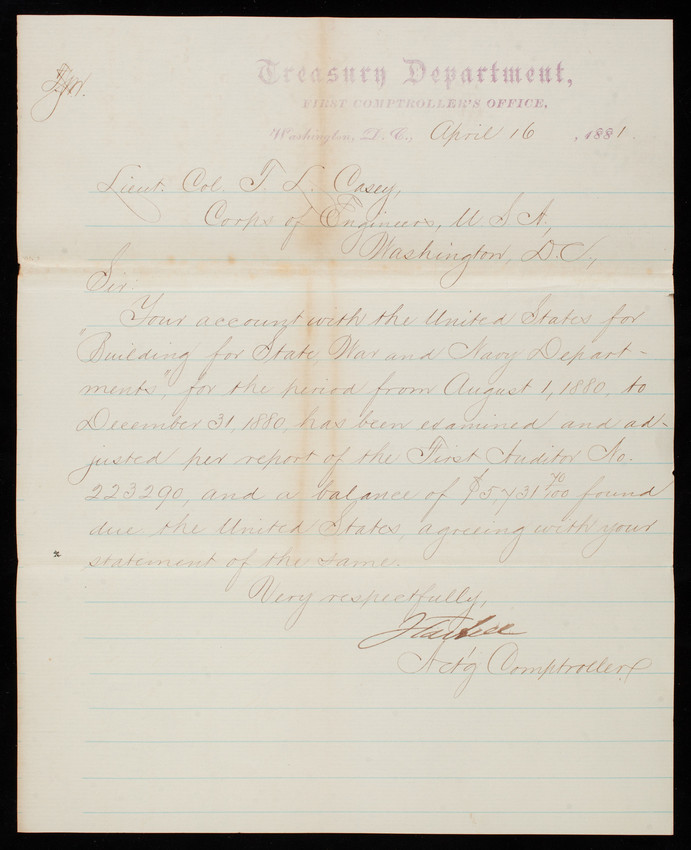 Treasury Department,
FIRST COMPTROLLER'S OFFICE,
Washington, D. C., April 16, 1881.
Lieut. Col. T. L. Casey,
Corps of Engineers, U S A,
Washington, D. C.,
Sir:
Your account with the United States for
"Building for State, War and Navy Depart-
ments," for the period from August 1, 1880, to
December 31, 1880, has been examined and ad-
justed per report of the First Auditor No.
223290, and a balance of $5731 70/100 found
due the United States, agreeing with your
statement of the same.
Very respectfully,
J Tarbell
Act'g Comptroller.